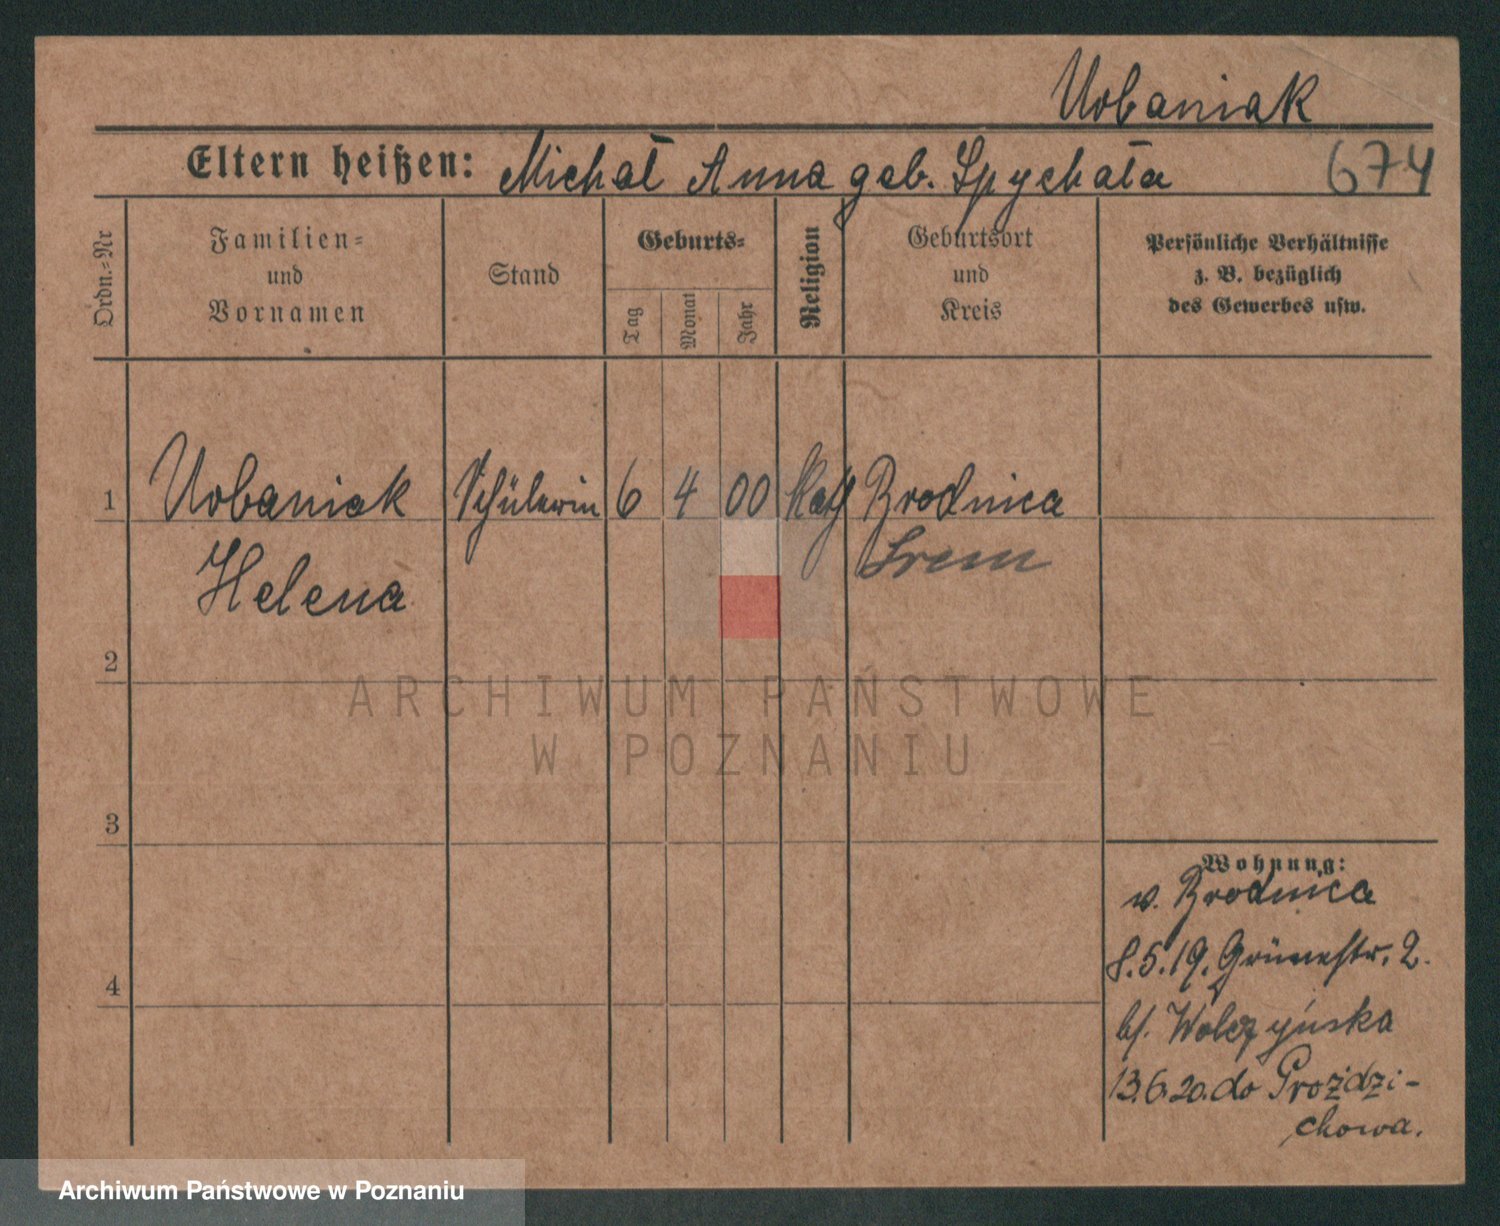 Urbaniak
Eltern heißen: Michał Anna geb. Spychała 674
Ordn.-Nr
Familien-
und
Vornamen
Stand
Geburts-
Tag
Monat
Jahr
Religion
Geburtsort
und
Kreis
Persönliche Verhältnisse
z. B. bezüglich
des Gewerbes usw.
1 Urbaniak Schülerin 6 4 00 Kath Brodnica
Helena Śrem
2
ARCHIWUM PAŃSTWOWE
W POZNANIU
3
4
Wohnung:
v. Brodnica
8.5.19. Grünestr. 2.
b/. Wolczyńska
13.6.20. do Proździ-
chowa.
Archiwum Państwowe w Poznaniu